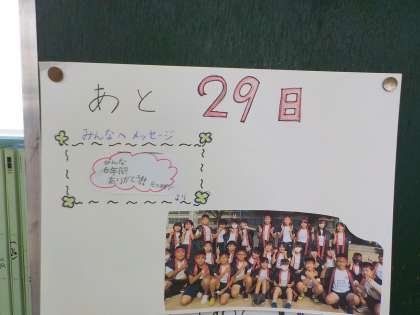 あと 29日
みんなへ メッセージ
みんな
6年間
ありがとう!!
より